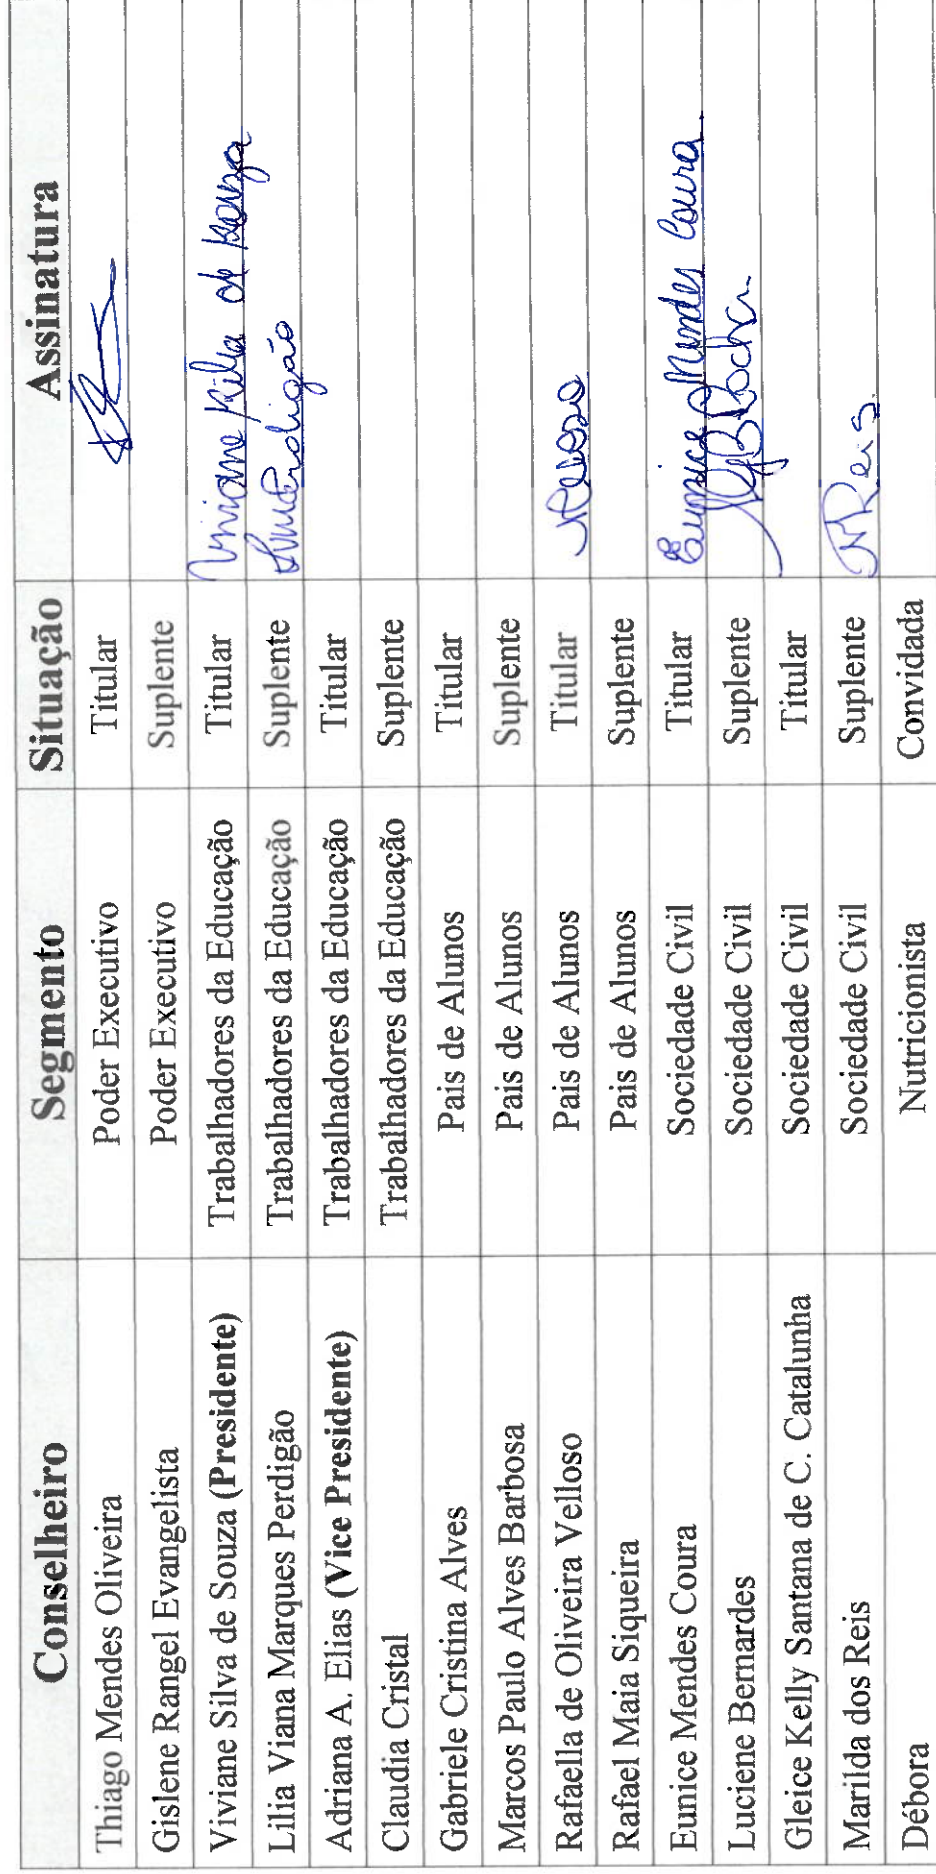 Conselheiro Segmento Situação Assinatura
Thiago Mendes Oliveira Poder Executivo Titular
Gislene Rangel Evangelista Poder Executivo Suplente
Viviane Silva de Souza (Presidente) Trabalhadores da Educação Titular Viviane Silva de Souza
Lilia Viana Marques Perdigão Trabalhadores da Educação Suplente
Adriana A. Elias (Vice Presidente) Trabalhadores da Educação Titular
Claudia Cristal Trabalhadores da Educação Suplente
Gabriele Cristina Alves Pais de Alunos Titular
Marcos Paulo Alves Barbosa Pais de Alunos Suplente
Rafaella de Oliveira Velloso Pais de Alunos Titular
Rafael Maia Siqueira Pais de Alunos Suplente
Eunice Mendes Coura Sociedade Civil Titular Eunice Mendes Coura
Luciene Bernardes Sociedade Civil Suplente
Gleice Kelly Santana de C. Catalunha Sociedade Civil Titular
Marilda dos Reis Sociedade Civil Suplente MReis
Débora Nutricionista Convidada